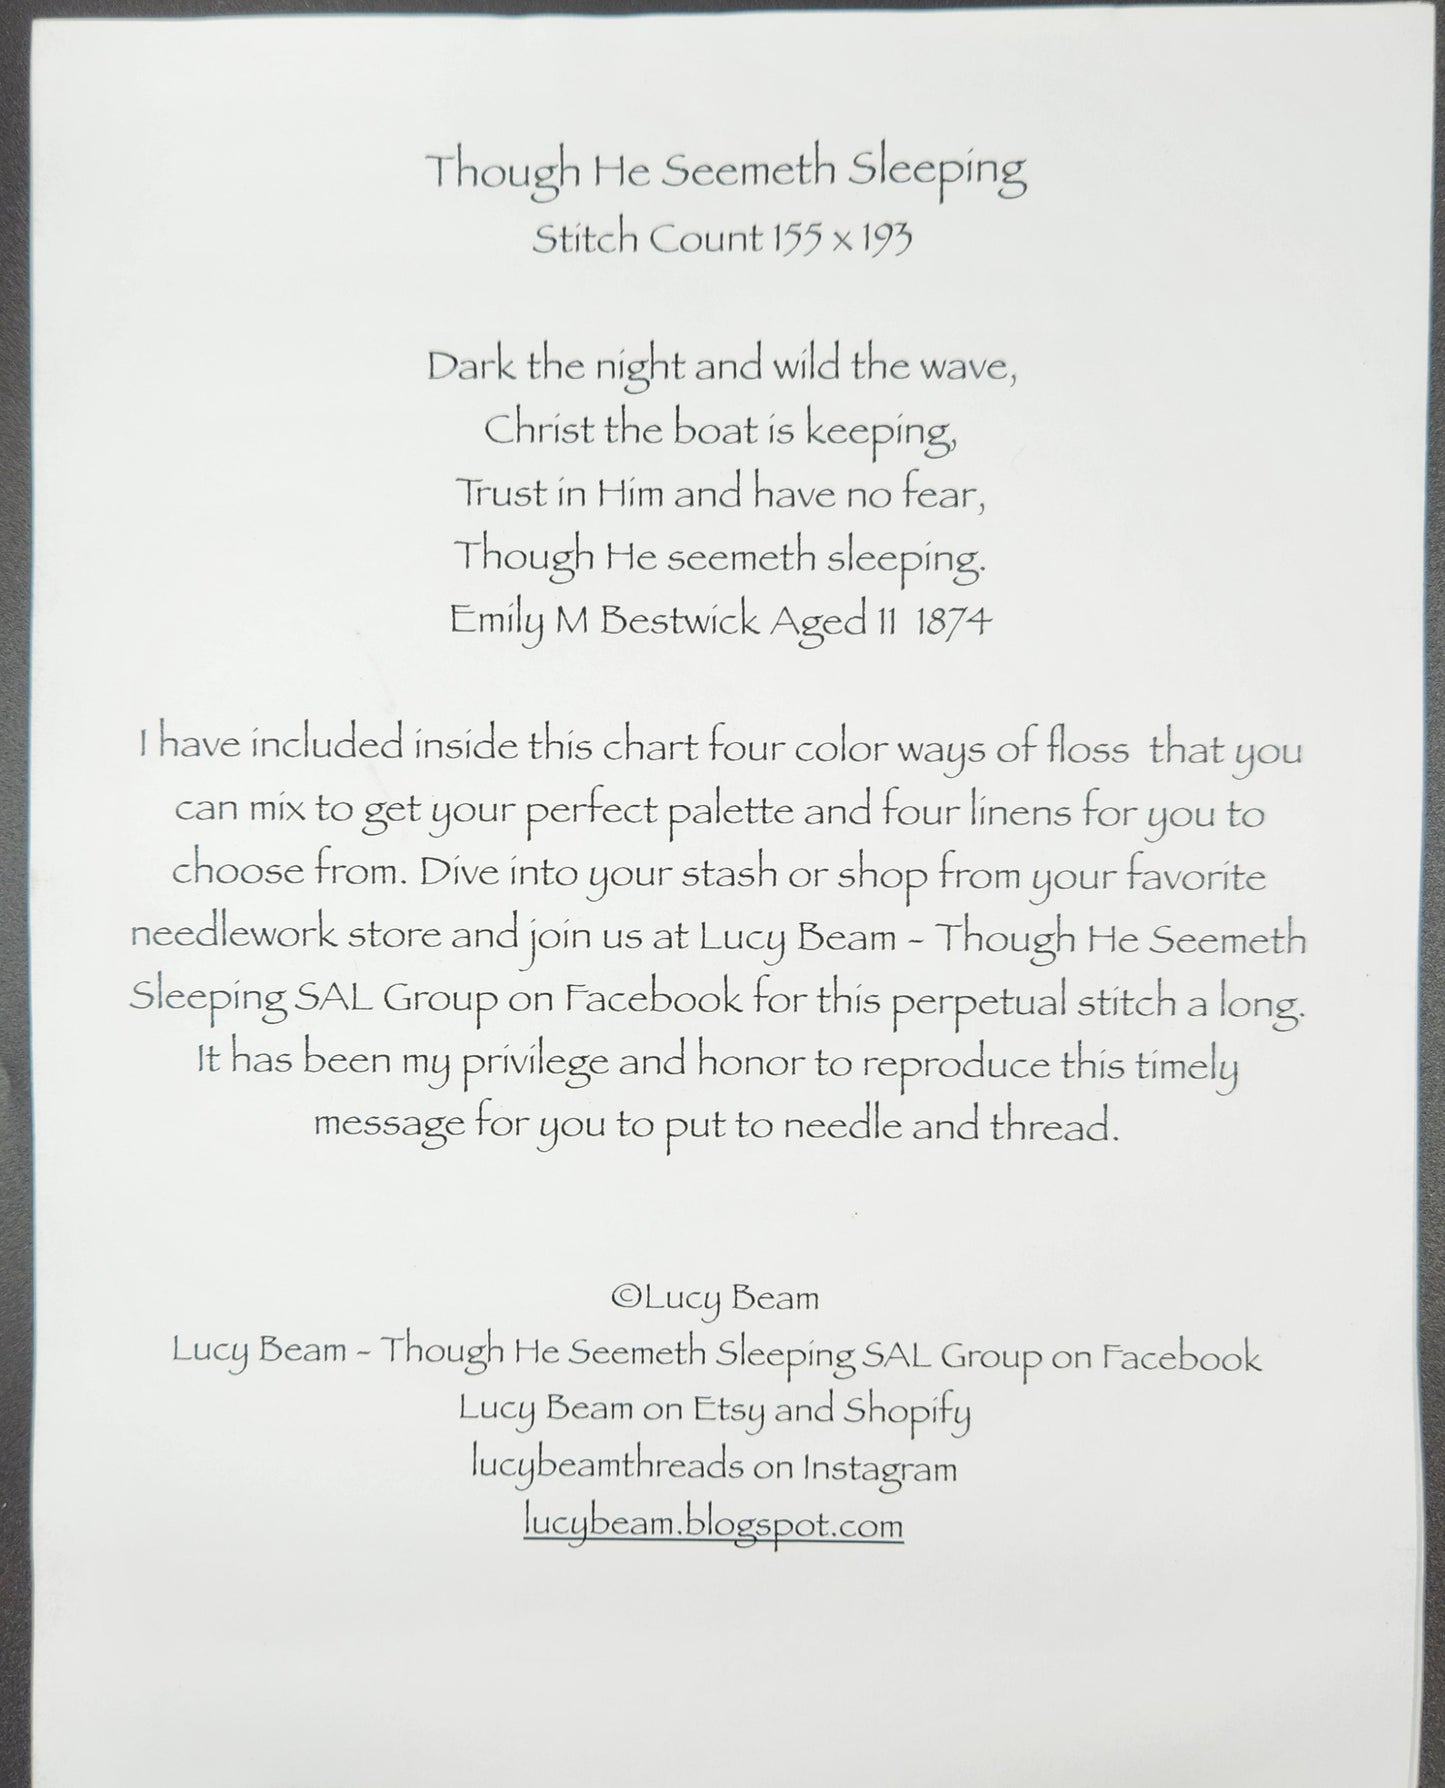 Though He Seemeth Sleeping
Stitch Count 155 x 193
Dark the night and wild the wave,
Christ the boat is keeping,
Trust in Him and have no fear,
Though He seemeth sleeping.
Emily M Bestwick Aged 11 1874
I have included inside this chart four color ways of floss that you
can mix to get your perfect palette and four linens for you to
choose from. Dive into your stash or shop from your favorite
needlework store and join us at Lucy Beam - Though He Seemeth
Sleeping SAL Group on Facebook for this perpetual stitch a long.
It has been my privilege and honor to reproduce this timely
message for you to put to needle and thread.
©Lucy Beam
Lucy Beam - Though He Seemeth Sleeping SAL Group on Facebook
Lucy Beam on Etsy and Shopify
lucybeamthreads on Instagram
lucybeam.blogspot.com